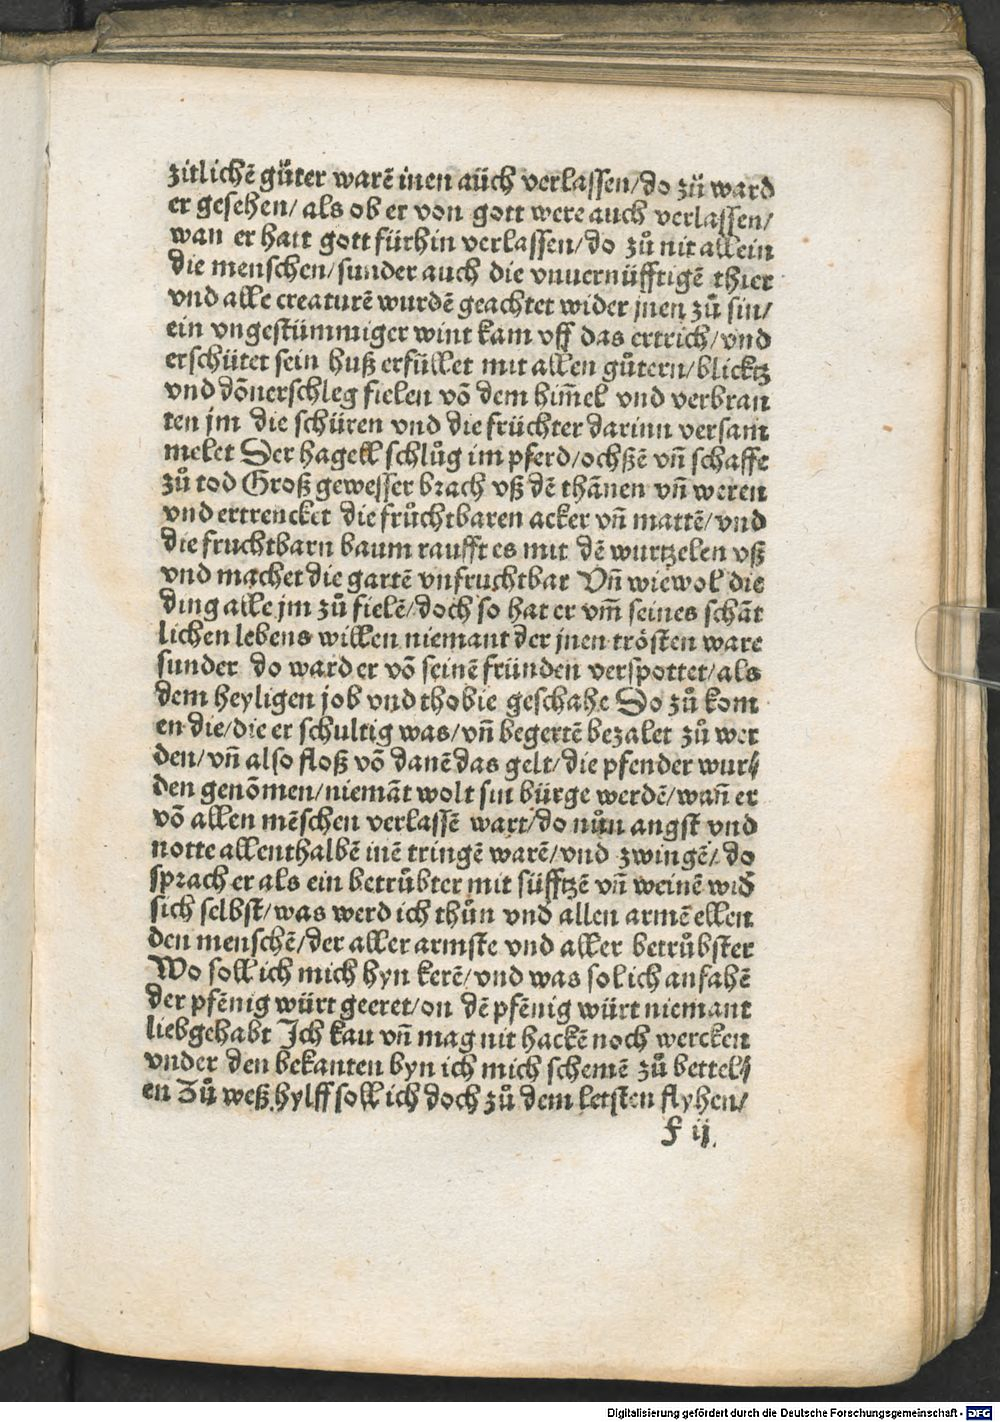 zitlichē guͤter warē inen auͤch verlassen/ do zuͦ ward
er gesehen/ als ob er von gott were auch verlassen/
wan er hatt gott fürhin verlassen/ do zuͦ nit allein
die menschen/ sunder auch die vnuernüfftigē thier
vnd alle creaturē wurdē geachtet wider jnen zuͦ sin/
ein vngestümmiger wint kam vff das ertrich/ vnd
erschütet sein huß erfüllet mit allen guͤtern/ blicktz
vnd dōnerschleg fielen vō dem him̄el vnd verbran
ten jm die schüren vnd die früchter darinn versam
melet Der hagell schluͦg im pferd/ ochßē vn̄ schaffe
zuͦ tod Groß gewesser brach vß dē thānen vn̄ weren
vnd ertrencket die fruͤchtbaren acker vn̄ mattē/ vnd
die fruchtbarn baum raufft es mit dē wurtzelen vß
vnd machet die gartē vnfruchtbar Vn̄ wiewol die
ding alle jm zuͦ fielē/ doch so hat er vm̄ seines schāt
lichen lebens willen niemant der jnen trösten ware
sunder do ward er vō seinē fründen verspottet/ als
dem heyligen job vnd thobie geschahe Do zuͦ kom
en die/ die er schultig was/ vn̄ begertē bezalet zuͦ wer
den/ vn̄ also floß vō danē das gelt/ die pfender wur⸗
den genōmen/ niemāt wolt sin bürge werdē/ wan̄ er
vō allen mēschen verlassē wart/ do nuͦn angst vnd
notte allenthalbē inē tringē warē/ vnd zwingē/ do
sprach er als ein betruͤbter mit süfftzē vn̄ weinē wid̄
sich selbst/ was werd ich thuͦn vnd allen armē ellen
den menschē/ der aller armste vnd aller betruͤbster
Wo soll ich mich hyn kerē/ vnd was sol ich anfahē
der pfēnig würt geeret/ on dē pfēnig würt niemant
liebgehabt Ich kan vn̄ mag nit hackē noch wercken
vnder den bekanten byn ich mich schemē zuͦ bettel⸗
en Zuͦ weß hylff soll ich doch zuͦ dem letsten flyhen/
f ij.
Digitalisierung gefördert durch die Deutsche Forschungsgemeinschaft - DFG